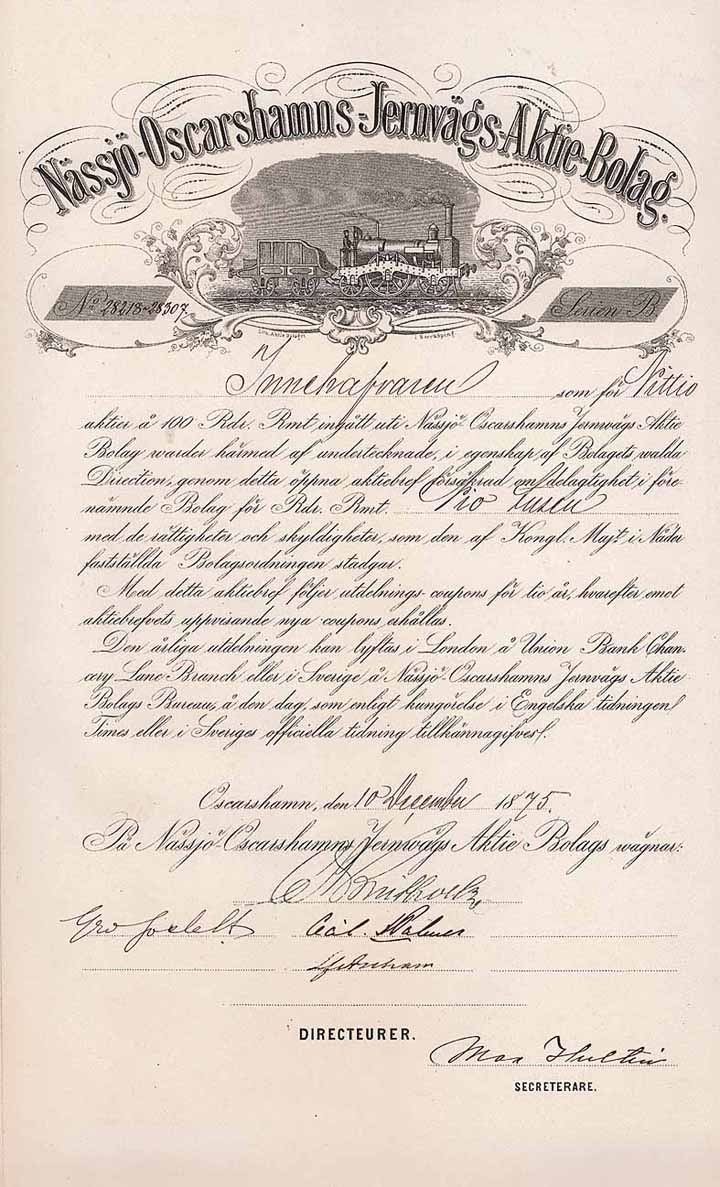 Nässjö-Oscarshamns-Jernvägs-Aktie-Bolag.
No 28218-28307
Serien B.
Innehafvaren som för Nittio
aktier à 100 Rdr. Rmt ingått uti Nässjö-Oscarshamns Jernvägs Aktie
Bolag warder härmed af undertecknade, i egenskap af Bolagets walda
Direction, genom detta öppna aktiebref försäkrad om delagtighet i före-
nämnde Bolag för Rdr. Rmt. Nio tusen
med de rättigheter och skyldigheter, som den af Kongl. Majt i Nåder
fastställda Bolagsordningen stadgar.
Med detta aktiebref följer utdelnings-coupons för tio år, hvarefter emot
aktiebrefvets uppvisande nya coupons erhållas.
Den årliga utdelningen kan lyftas i London å Union Bank Chan-
cery Lane Branch eller i Sverige å Nässjö-Oscarshamns Jernvägs Aktie
Bolags Bureau, å den dag, som enligt kungörelse i Engelska tidningen
Times eller i Sveriges officiella tidning tillkännagifves.
Oscarshamn, den 10 December 1875.
På Nässjö-Oscarshamns Jernvägs Aktie Bolags wägnar:
DIRECTEURER.
Max Hultin
SECRETERARE.